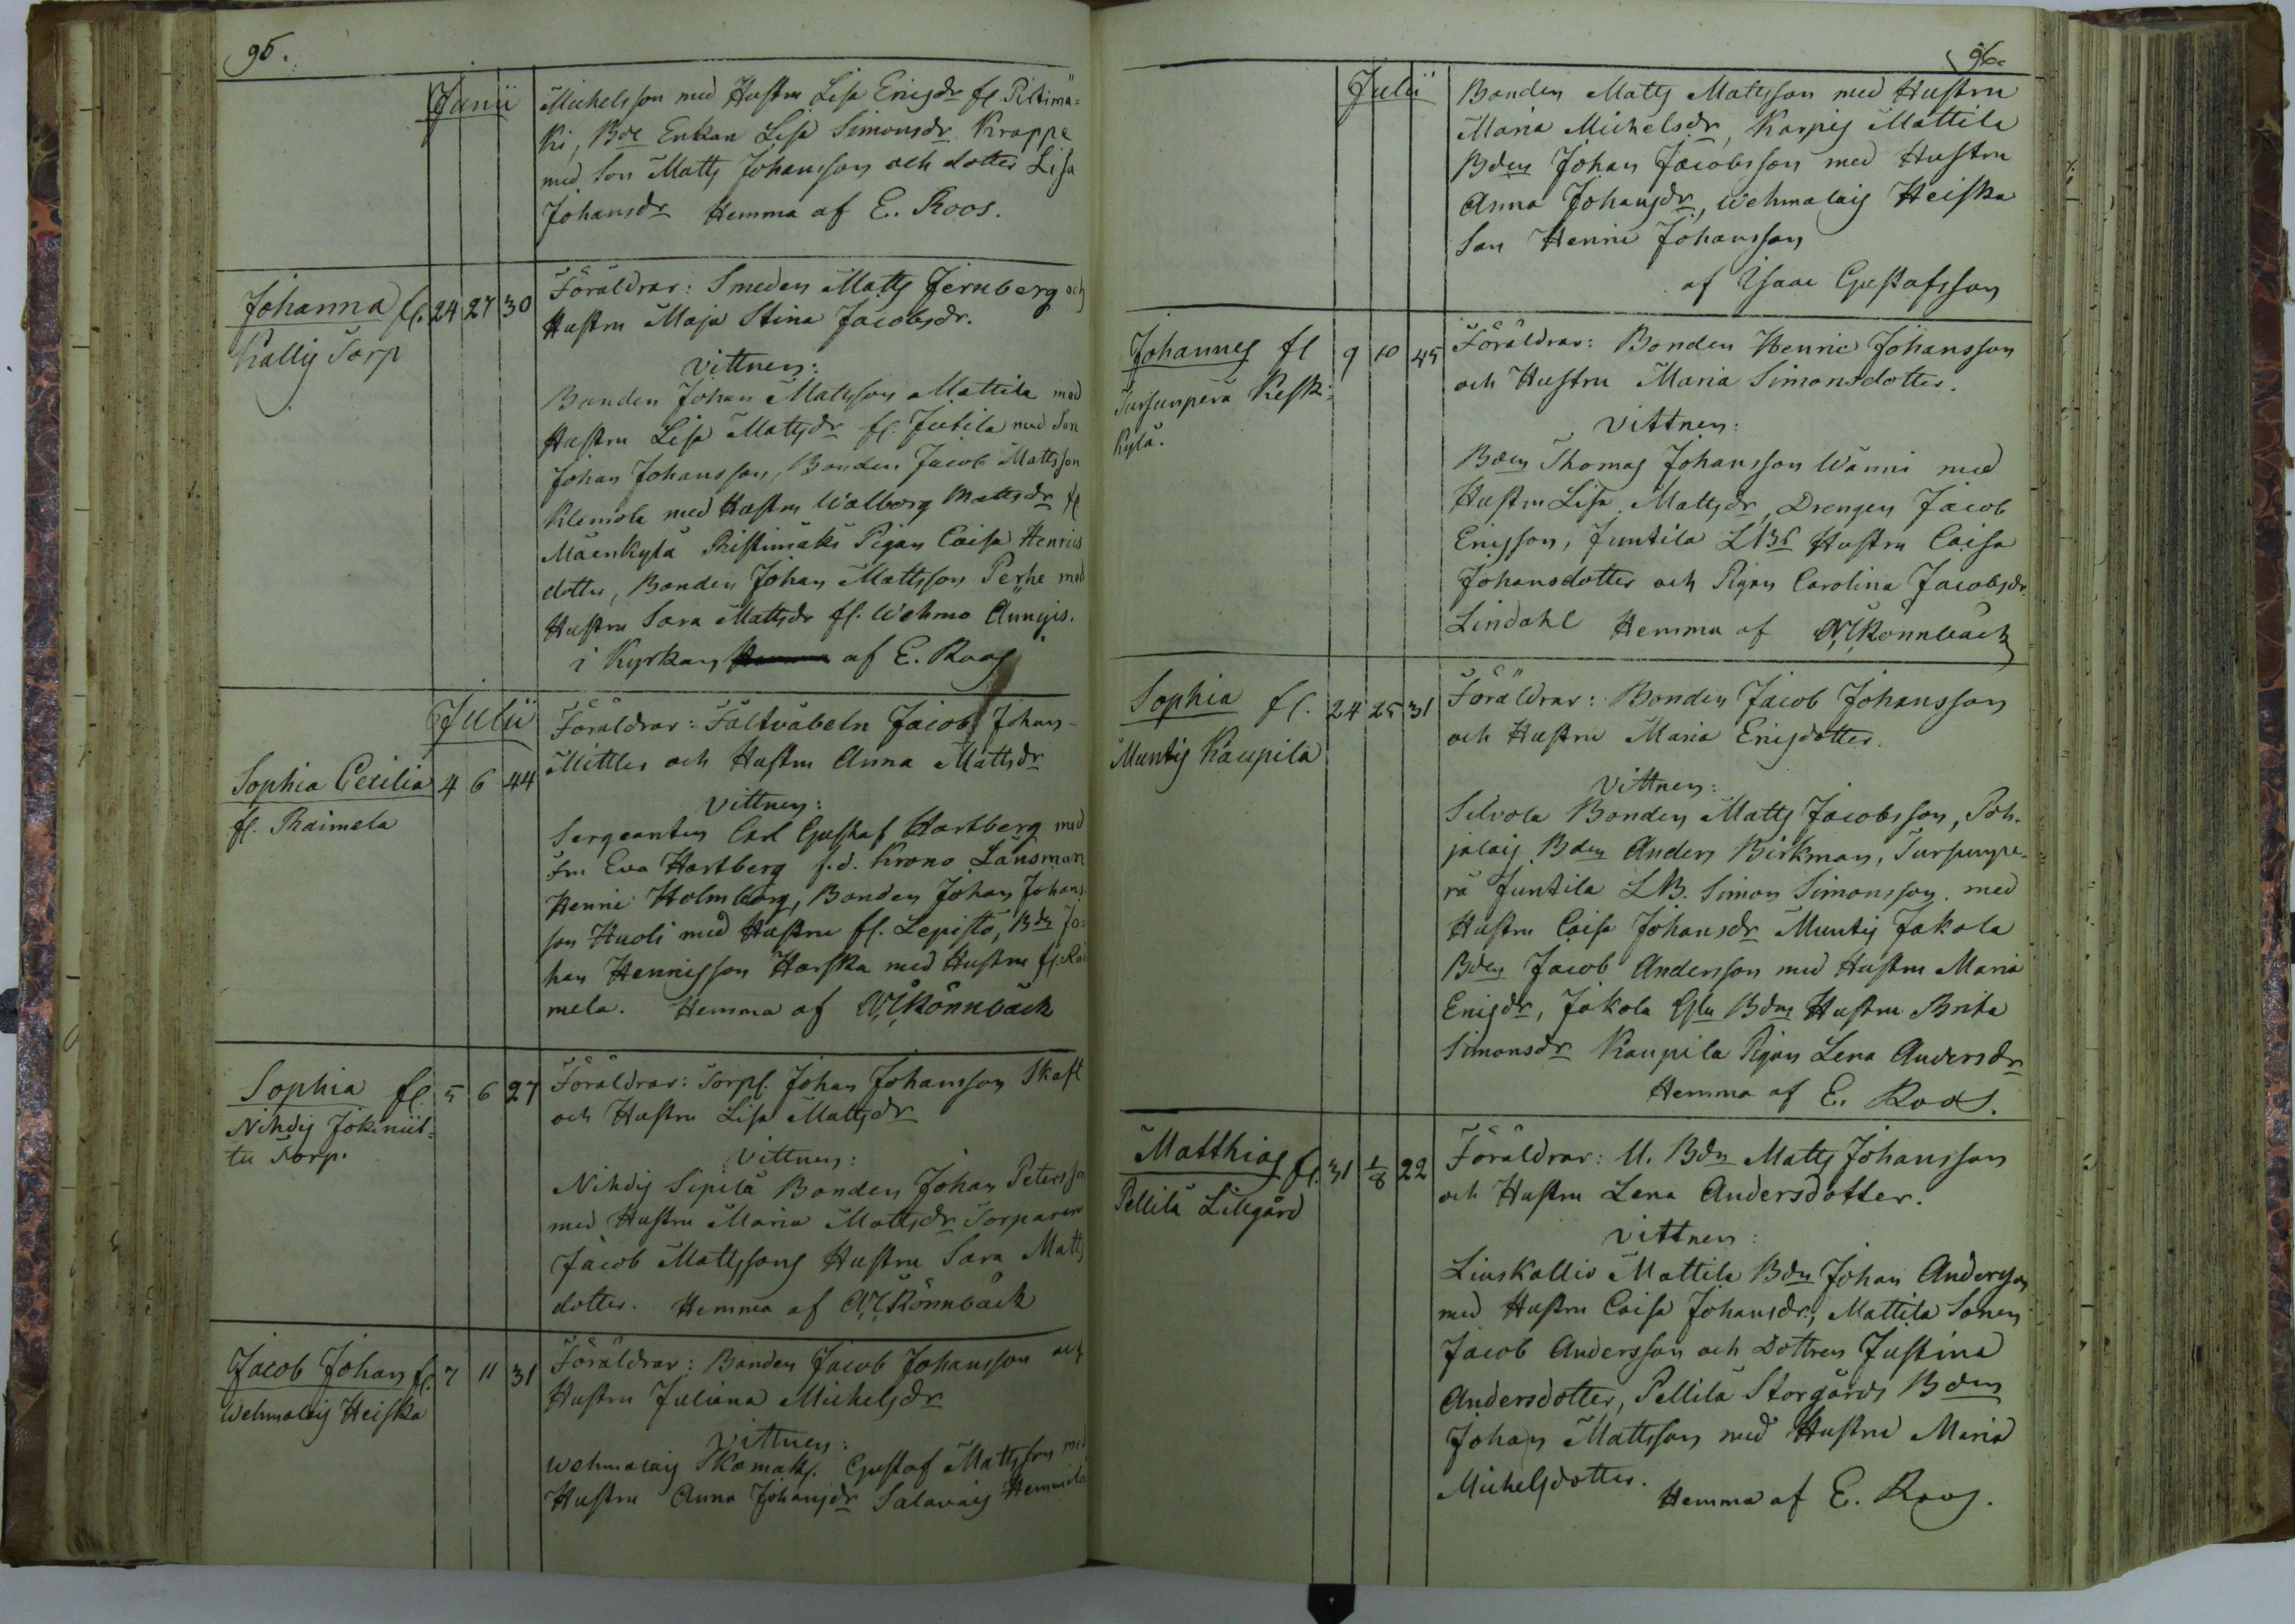 95.
Junii
Michelsson med Hustru Lisa Ericsdr fl. Ristimä=
ki, Bde Enkan Lisa Simonsdr Krappe
med Son Matts Johansson och dotter Lisa
Johansdr Hemma af E. Roos.
Johanna fl. 24 27 30
Kallis Torp
Föräldrar: Smeden Matts Jernberg och
Hustru Maja Stina Jacobsdr.
Vittnen:
Bonden Johan Matsson Mattila med
Hustru Lisa Mattsdr fl. Jutila med Son
Johan Johansson, Bonden Jacob Mattsson
Klemola med Hustru Walborg Mattsdr fl
Mäenkylä Ristimäki Pigan Caisa Henrics
dotter, Bonden Johan Mattsson Perhe med
Hustru Sara Mattsdr fl. Wehmo Anngis.
i Kyrkan af E. Roos
Julii
Sophia Cecilia 4 6 44
fl. Raimela
Föräldrar: Fältväbeln Jacob Johan
Mittler och Hustru Anna Mattsdr
Vittnen:
Sergeanten Carl Gustaf Hartberg med
Fru Eva Hartberg f.d. Krono Länsman
Henric Holmberg, Bonden Johan Johans
son Huoli med Hustru fl. Lepistö, Bdn Jo=
han Henricsson Harska med Hustru fl. Rai
mela. Hemma af Rönnbäck
Sophia fl. 5 6 27
Nihdis Jokiniit=
tu Torp.
Föräldrar: Torp. Johan Johansson Skaft
och Hustru Lisa Mattsdr
Vittnen:
Nihdis Sipilä Bonden Johan Petersson
med Hustru Maria Mattsdr Torparen
Jacob Mattssons Hustru Sara Matts
dotter. Hemma af Rönnbäck
Jacob Johan fl. 7 11 31
Wehmalais Heiska
Föräldrar: Bonden Jacob Johansson och
Hustru Juliana Michelsdr
Vittnen:
Wehmalais Skomak. Gustaf Mattsson med
Hustru Anna Johansdr Salavais Hemmilä
96.
Julii
Bonden Matts Matsson med Hustru
Maria Michelsdr, Karpis Mattila
Bden Johan Jacobsson med Hustru
Anna Johansdr, Wehmalais Heiska
Son Henric Johansson
af Isaac Gustafsson
Johannes fl 9 10 45
Tursunperä Keski=
kylä.
Föräldrar: Bonden Henric Johansson
och Hustru Maria Simonsdotter.
Vittnen:
Bden Thomas Johansson Wänni med
Hustru Lisa Mattsdr, Drengen Jacob
Ericsson, Juntila LBs Hustru Caisa
Johansdotter och Pigan Carolina Jacobsdr
Lindahl Hemma af Rönnbäck
Sophia fl. 24 25 31
Muntis Kaupila
Föräldrar: Bonden Jacob Johansson
och Hustru Maria Ericsdotter.
Vittnen:
Silvola Bonden Matts Jacobsson, Poh-
jalais Bden Anders Birkman, Tursunpe-
rä Juntila LB. Simon Simonsson med
Hustru Caisa Johansdr Muntis Jakola
Bden Jacob Andersson med Hustru Maria
Ericsdr, Jakola Bdns Hustru Brita
Simonsdr Kaupila Pigan Lena Andersdr
Hemma af E. Roos.
Matthias fl. 31 1/8 22
Pellilä Lillgård
Föräldrar: U. Bdn Matts Johansson
och Hustru Lena Andersdotter.
Vittnen:
Liuskallio Mattila Bdn Johan Andersson
med Hustru Caisa Johansdr, Mattila Sonen
Jacob Andersson och Dottren Justina
Andersdotter, Pellilä Storgårds Bden
Johan Mattsson med Hustru Maria
Michelsdotter. Hemma af E. Roos.